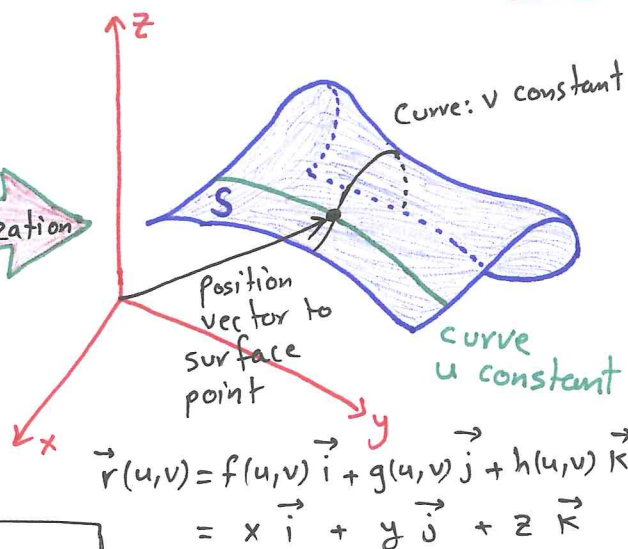 z
curve: v constant
S
position
vector to
surface
point
curve
u constant
x
y
r⃗(u,v) = f(u,v) i⃗ + g(u,v) j⃗ + h(u,v) k⃗
= x i⃗ + y j⃗ + z k⃗